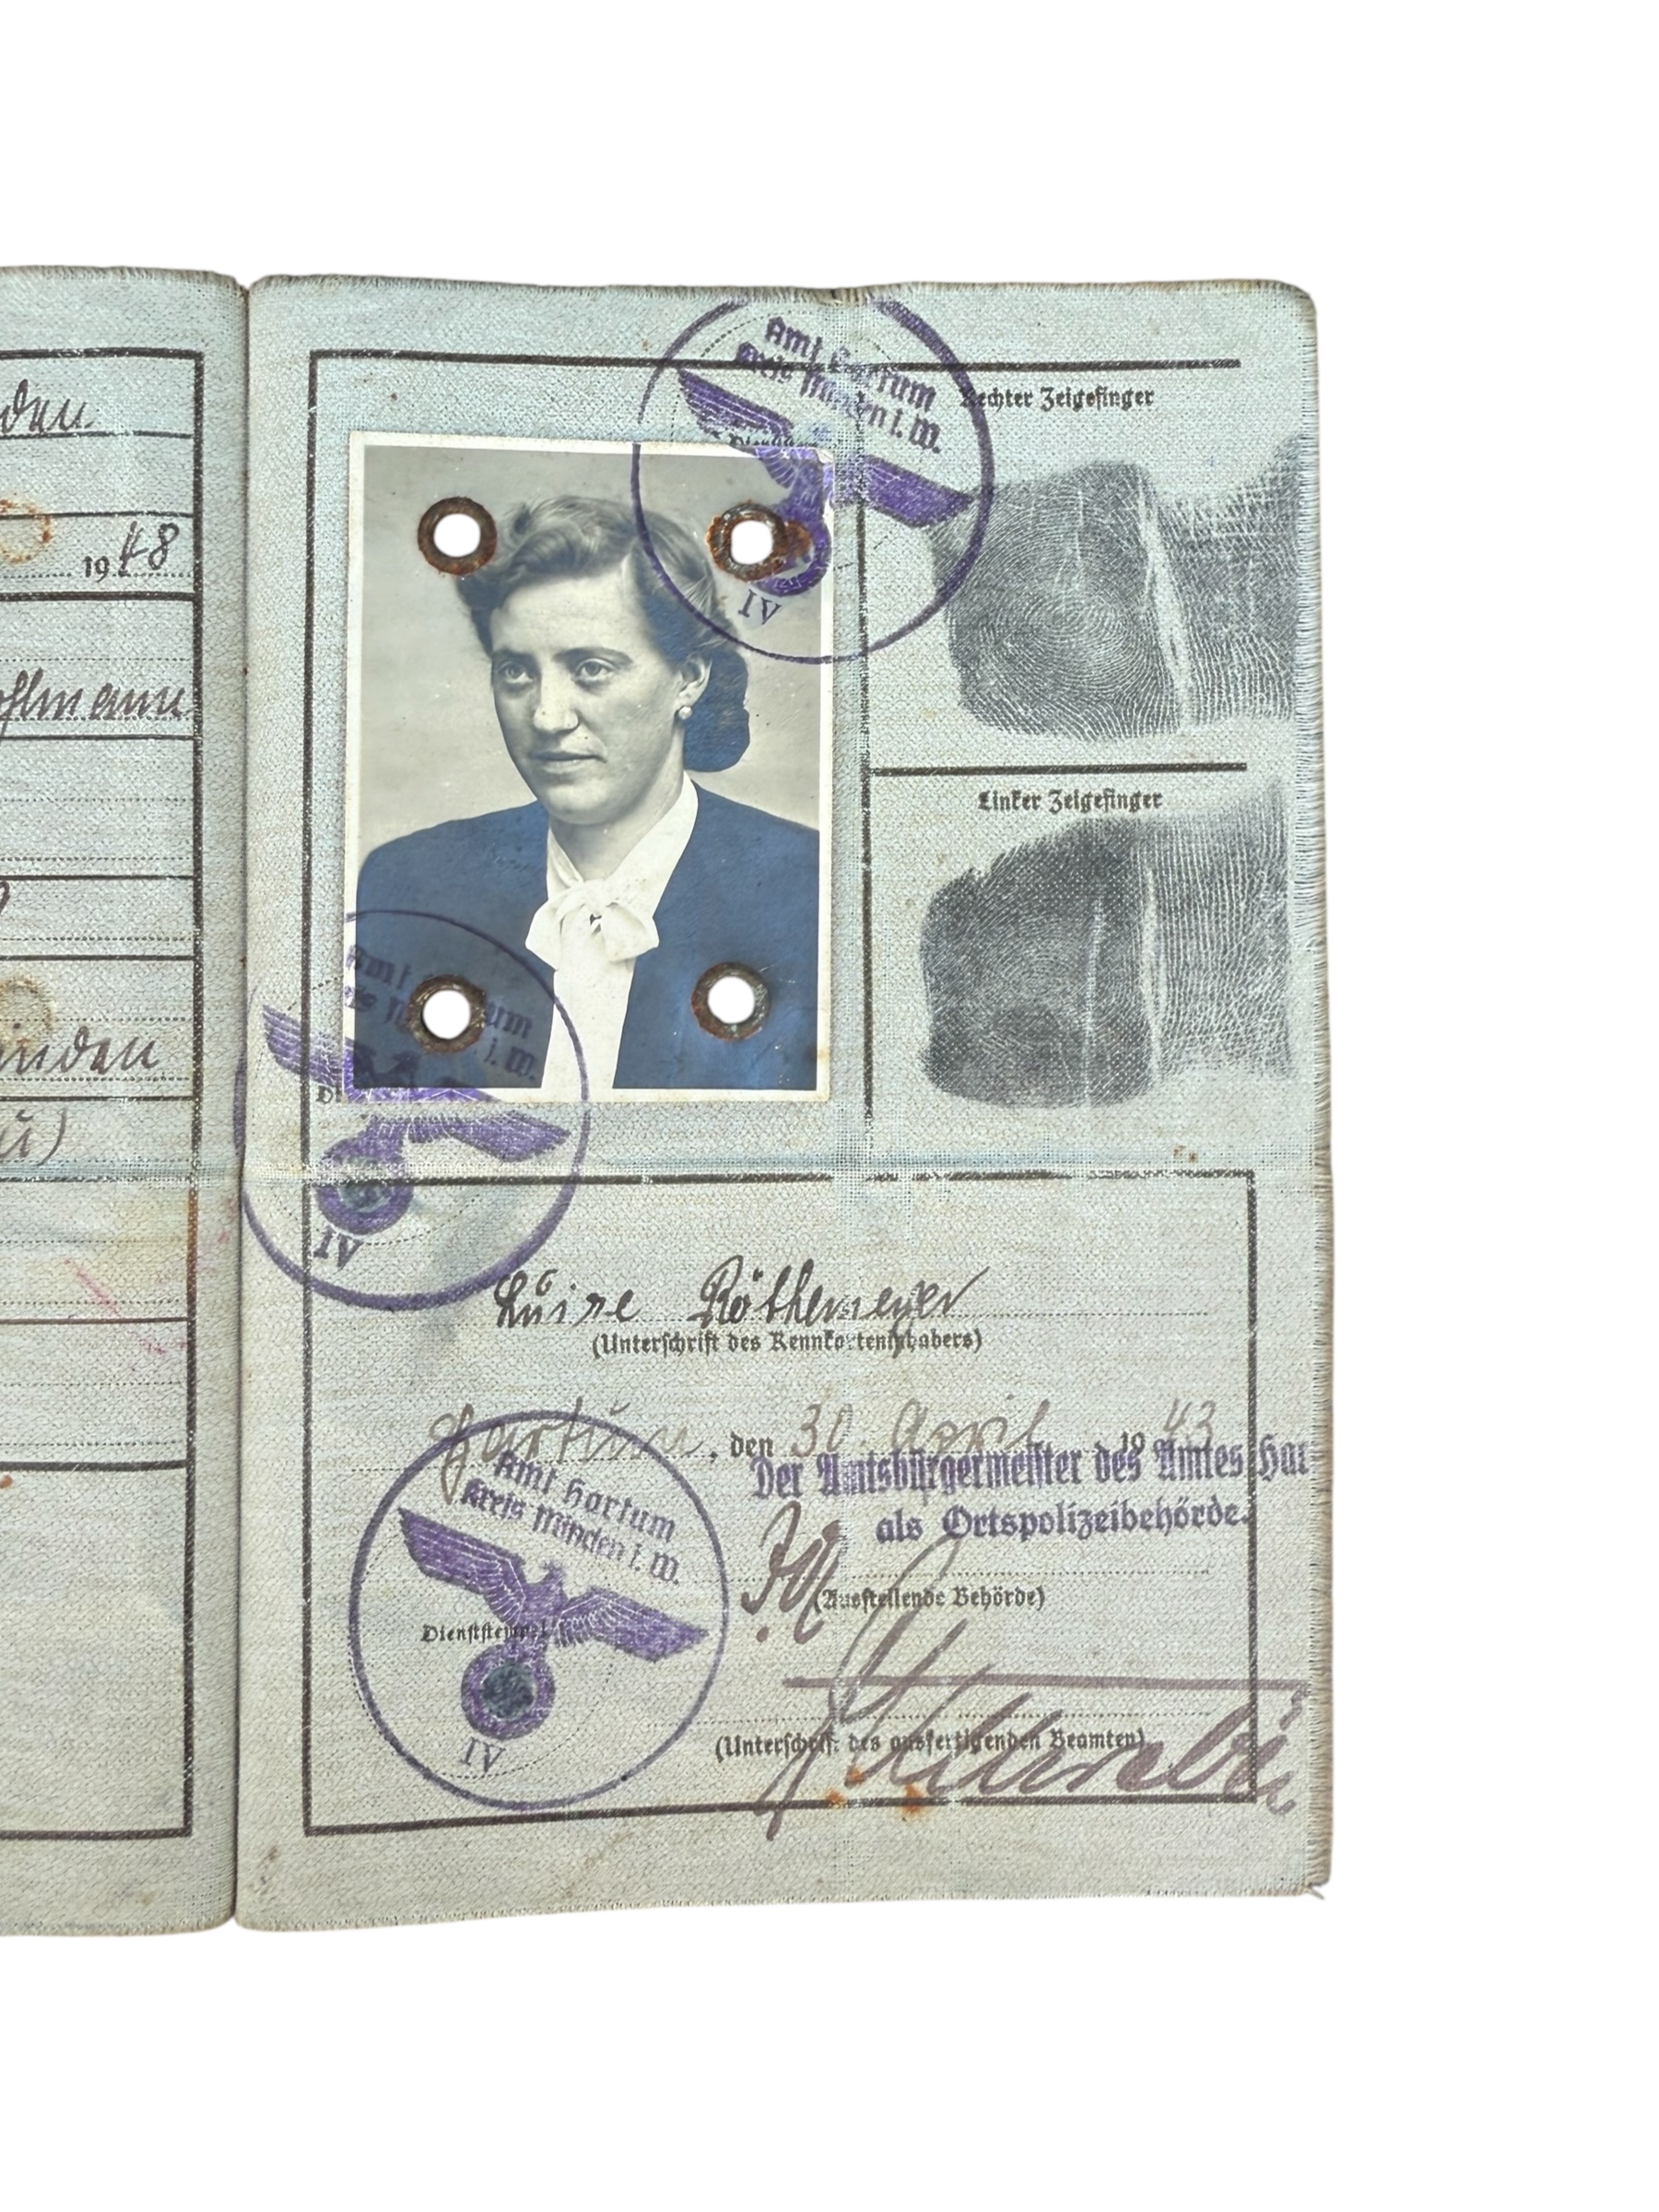 den
1948
ohlmann
inden
u)
Amt Hartum
Kreis Minden i. W.
IV
Rechter Zeigefinger
Linker Zeigefinger
Amt Hartum
Kreis i. W.
IV
Luise Röthemeyer
(Unterschrift des Kennkarteninhabers)
Hartum, den 30. April 1943
Der Amtsbürgermeister des Amtes Har
als Ortspolizeibehörde.
(Ausstellende Behörde)
Amt Hartum
Kreis Minden i. W.
Dienststempel
IV
(Unterschrift des ausfertigenden Beamten)